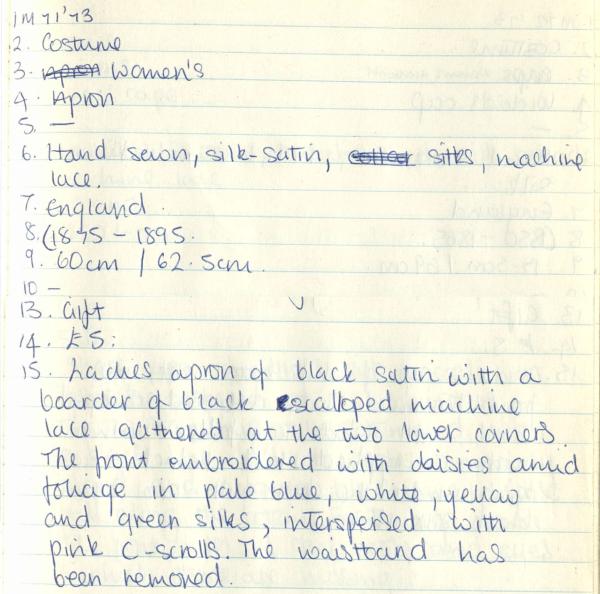 1M71'73
2. Costume
3. Apron Women's
4. Apron
5. —
6. Hand sewn, silk-satin, silks, machine
lace.
7. England.
8. (1875 – 1895.
9. 60cm / 62.5cm.
10 –
13. Gift
14. £5:
15. Ladies apron of black satin with a
boarder of black scalloped machine
lace gathered at the two lower corners.
The front embroidered with daisies amd
foliage in pale blue, white, yellow
and green silks, interspersed with
pink C-scrolls. The waistband has
been removed.